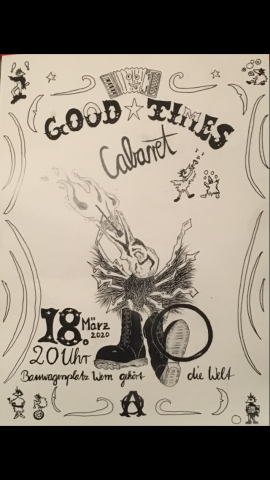 GOOD ☆ TIMES
Cabaret
18. März
2020
20 Uhr
Bauwagenplatz Wem gehört die Welt
A